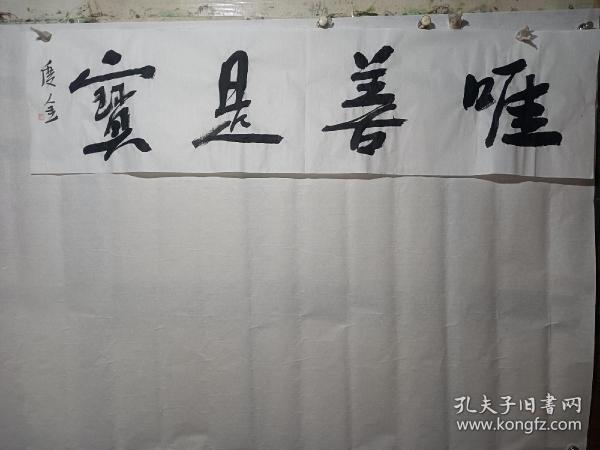 唯善是寶
孔夫子旧書网
www.kongfz.com